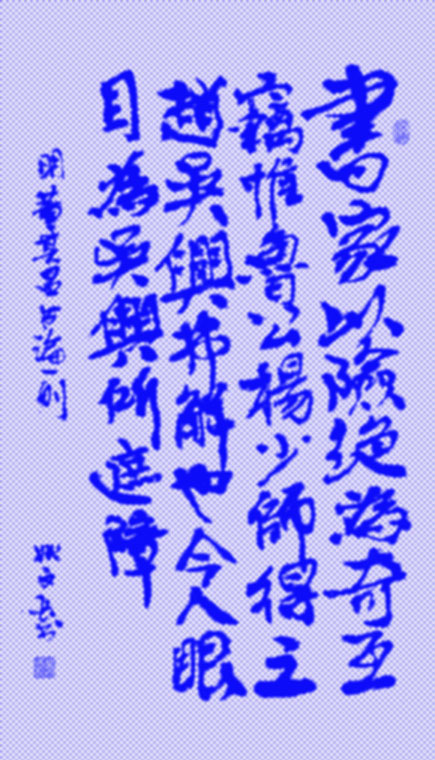 書家以險絕為奇互
竊惟魯公楊少師得主
趙吳興弗解也今人眼
目為吳興所遮障
明董其昌書論一則